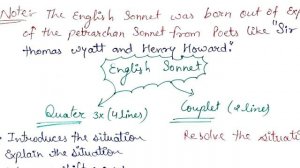 Note:- The English Sonnet was born out of Exp
of the petrarchan Sonnet from Poets like "Sir
thomas wyatt and Henry Howard."
English Sonnet
Quater 3x (4 lines)
Couplet (2 lines)
• Introduces the situation
Resolve the situati
Explain the situation